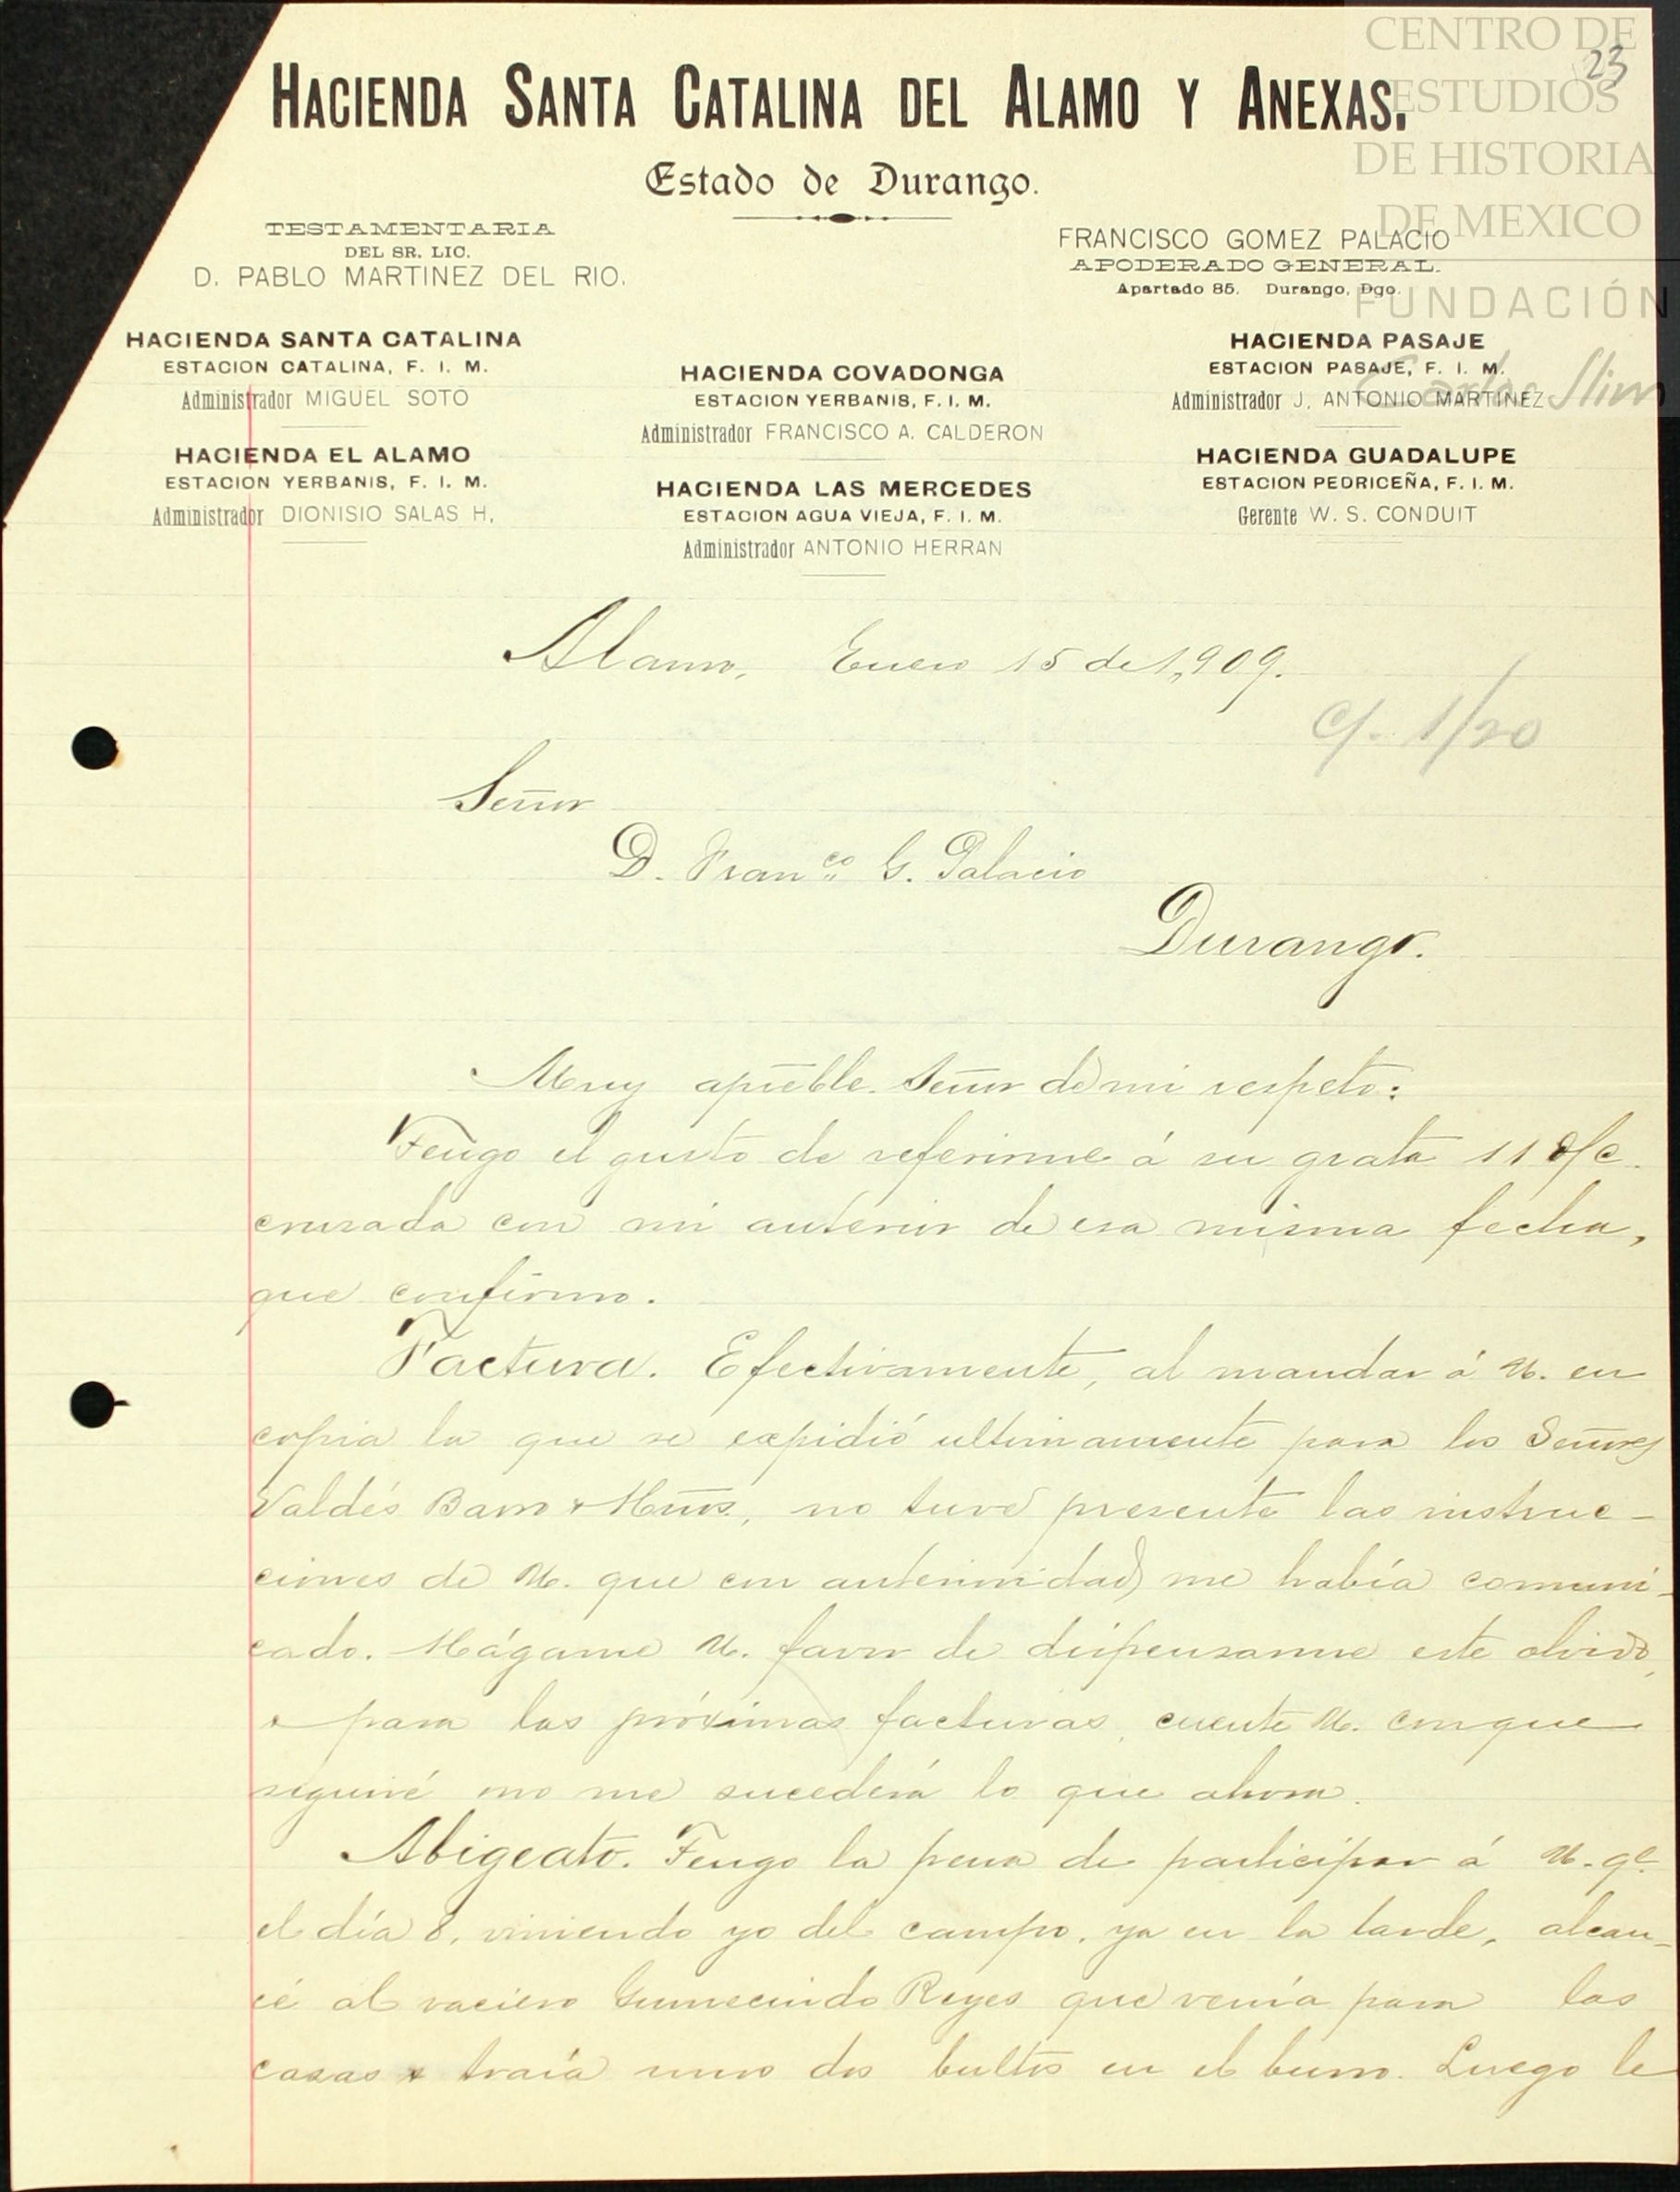 CENTRO DE
ESTUDIOS
DE HISTORIA
DE MEXICO
FUNDACIÓN
Carlos Slim
23
HACIENDA SANTA CATALINA DEL ALAMO Y ANEXAS.
Estado de Durango.
TESTAMENTARIA
DEL SR. LIC.
D. PABLO MARTINEZ DEL RIO.
FRANCISCO GOMEZ PALACIO
APODERADO GENERAL.
Apartado 85. Durango, Dgo.
HACIENDA SANTA CATALINA
ESTACION CATALINA, F. I. M.
Administrador MIGUEL SOTO
HACIENDA EL ALAMO
ESTACION YERBANIS, F. I. M.
Administrador DIONISIO SALAS H,
HACIENDA COVADONGA
ESTACION YERBANIS, F. I. M.
Administrador FRANCISCO A. CALDERON
HACIENDA LAS MERCEDES
ESTACION AGUA VIEJA, F. I. M.
Administrador ANTONIO HERRAN
HACIENDA PASAJE
ESTACION PASAJE, F. I. M.
Administrador J. ANTONIO MARTINEZ
HACIENDA GUADALUPE
ESTACION PEDRICEÑA, F. I. M.
Gerente W. S. CONDUIT
Alamo, Enero 15 de 1,909.
C/. 1/20
Señor
D. Franco. G. Palacio
Durango.
Muy apreble. Señor de mi respeto:
Tengo el gusto de referirme á su grata 11 d/c.
cruzada con mi anterior de esa misma fecha,
que confirmo.
Factura. Efectivamente, al mandar á U. en
copia la que se expidió ultimamente para los Señores
Valdés Barro & Hnos., no tuve presente las instruc-
ciones de U. que con anterioridad me había comuni-
cado. Hágame U. favor de dispensarme este olvido,
& para las próximas facturas, cuente U. conque
seguiré no me sucederá lo que ahora.
Abigeato. Tengo la pena de participar á U. qe.
el día 8, viniendo yo del campo, ya en la tarde, alcan-
cé al vaciero Gumecindo Reyes que venía para las
casas & traía unos dos bultos en el burro. Luego le